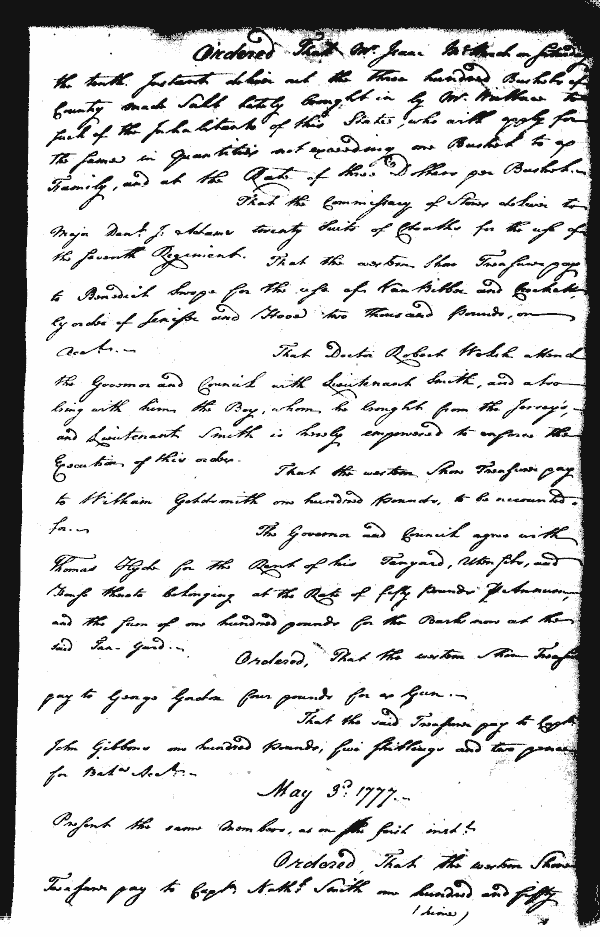 Ordered That Mr. Isaac McHard on Saturday
the tenth Instant deliver out the three hundred Bushels of
Country made Salt lately brought in by Mr. Wallace to
such of the Inhabitants of this State, who will apply for
the same in Quantities not exceeding one Bushel to a
Family, and at the Rate of three Dollars per Bushel.
That the Commissary of Stores deliver to
Major Danl. J. Adams twenty Suits of Cloathes for the use of
the seventh Regiment. That the western Shore Treasurer pay
to Benedict Swope for the use of Van Bibber and Crockett,
by order of and Hood two thousand Pounds, on
Acct.
That Doctor Robert Walsh attend
the Governor and Council with Lieutenant Smith, and also
bring with him the Boy, whom he brought from the Jerseys,
and Lieutenant Smith is hereby empowered to enforce the
Execution of this order.
That the western Shore Treasurer pay
to William Goldsmith one hundred pounds, to be accounted
for.
The Governor and Council agree with
Thomas Hyde for the Rent of his Tanyard, Utensils, and
thereto belonging at the Rate of fifty Pounds P Annum,
and the sum of one hundred pounds for the Bark now at the
said Tan-Yard.
Ordered, That the western Shore Treasr
pay to George Gordon four pounds for a Gun.
That the said Treasurer pay to Captn
John Gibbons one hundred pounds, five shillings and two pence
for Acct.
May 3d. 1777.
Present the same members, as on the first inst.
Ordered, That the western Shore
Treasurer pay to Captn. Nathl. Smith one hundred and fifty